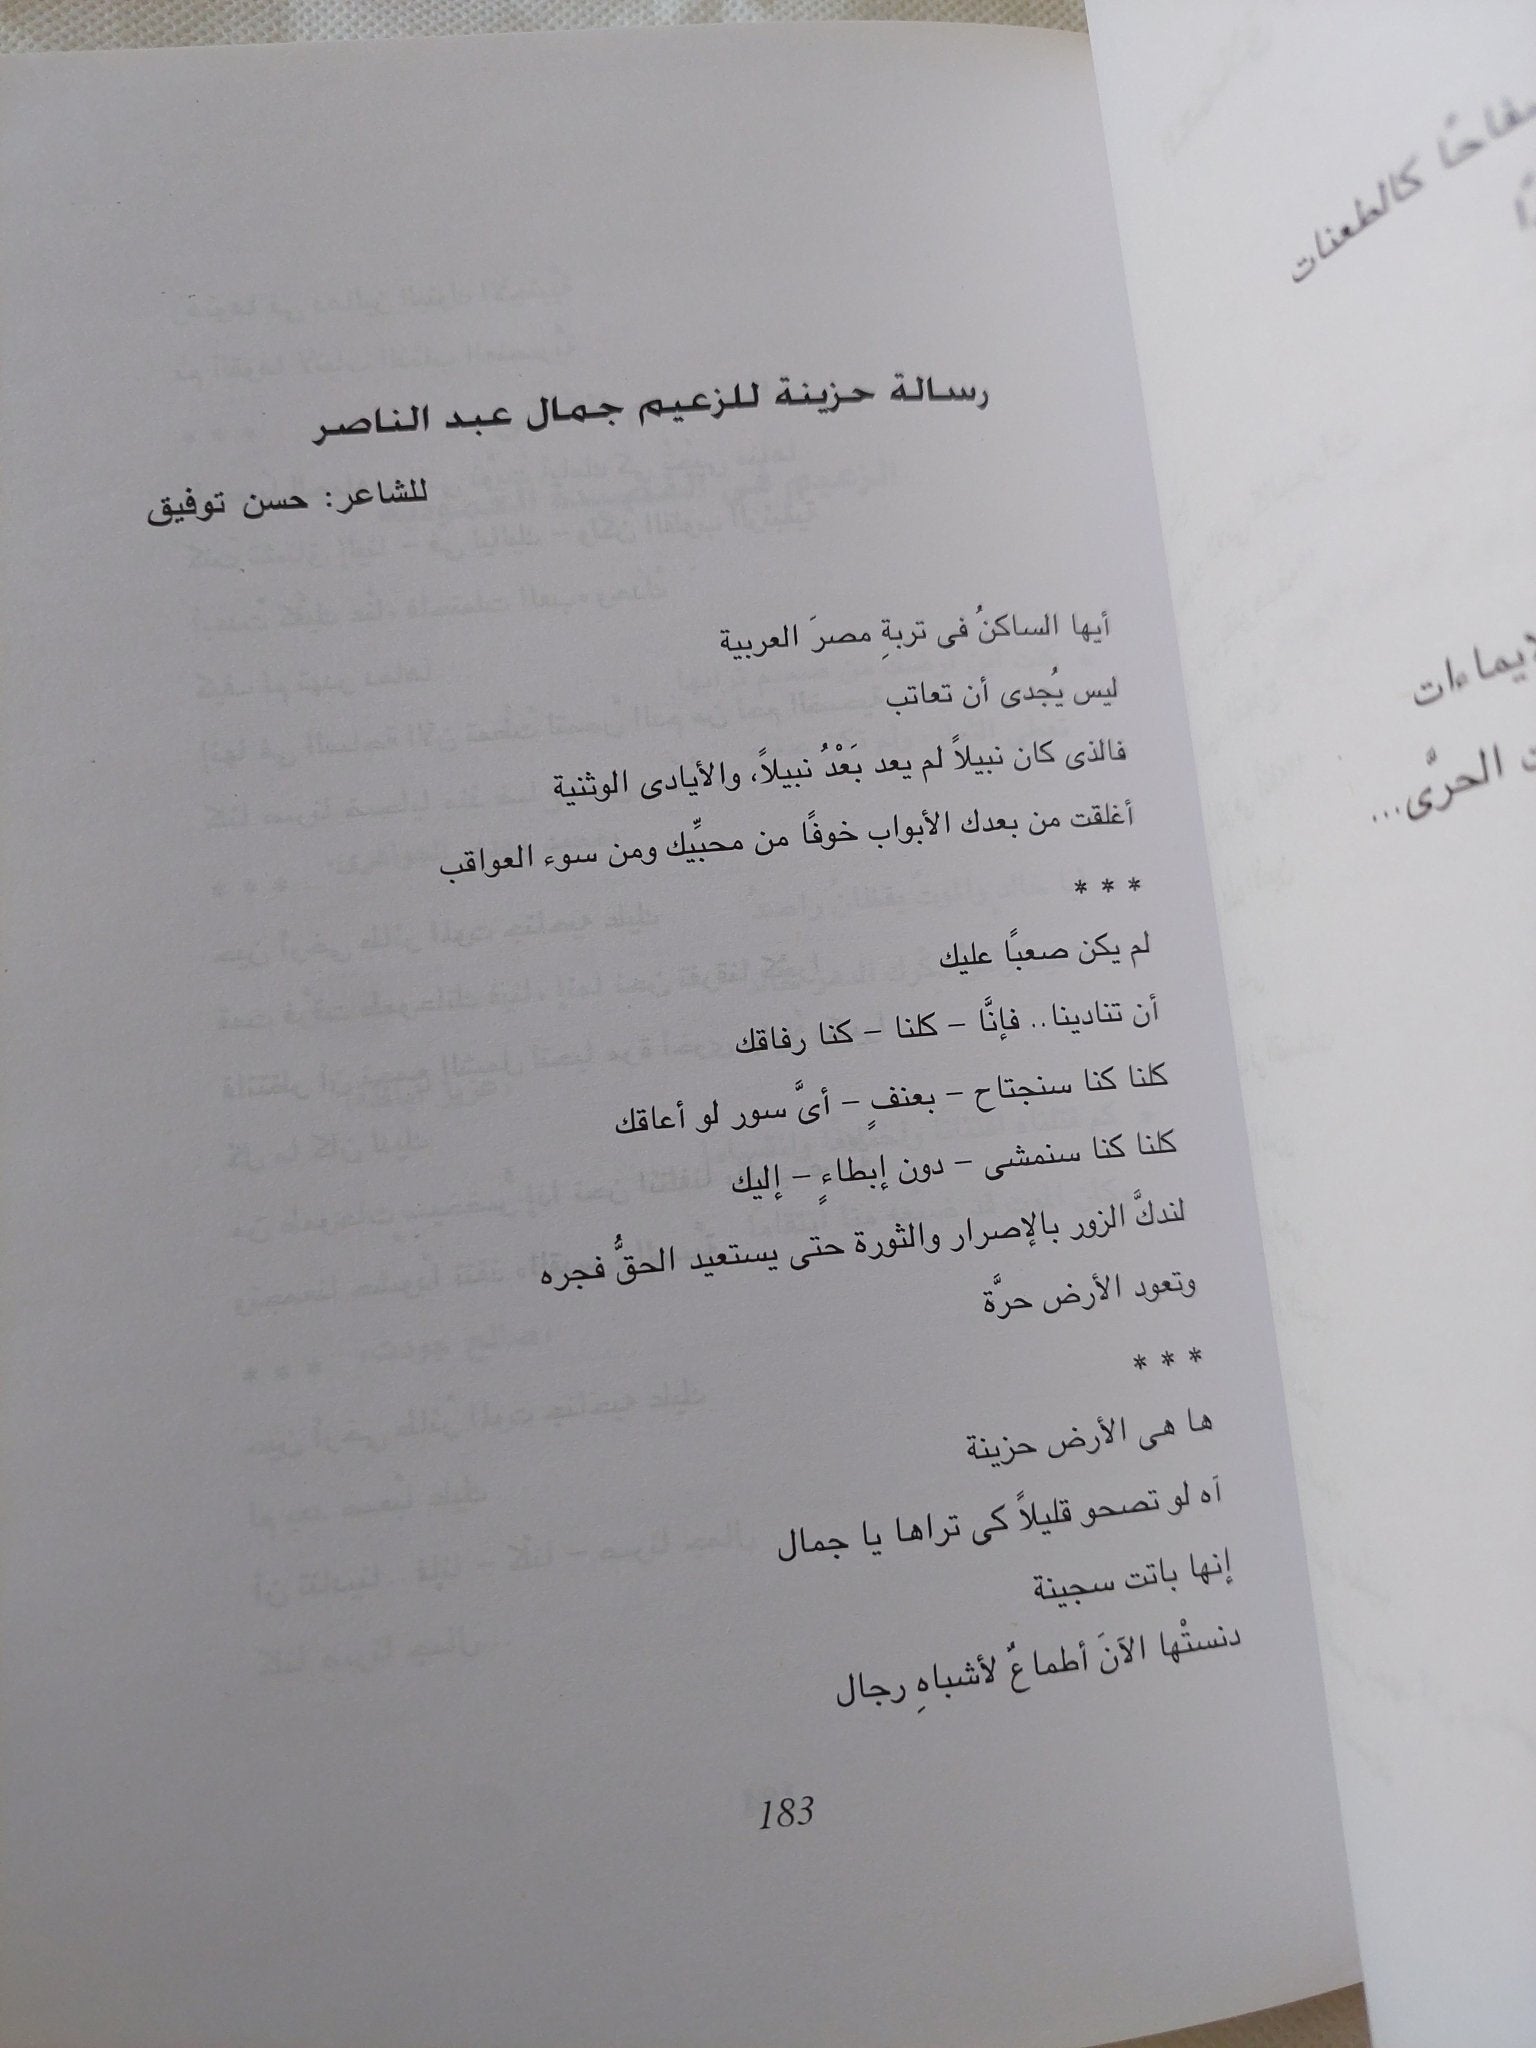 رسالة حزينة للزعيم جمال عبد الناصر
للشاعر: حسن توفيق
أيها الساكنُ فى تربةِ مصرَ العربية
ليس يُجدى أن تعاتب
فالذى كان نبيلاً لم يعد بَعْدُ نبيلاً، والأيادى الوثنية
أغلقت من بعدك الأبواب خوفًا من محبِّيك ومن سوء العواقب
* * *
لم يكن صعبًا عليك
أن تنادينا.. فإنَّا – كلنا – كنا رفاقك
كلنا كنا سنجتاح – بعنفٍ – أىَّ سور لو أعاقك
كلنا كنا سنمشى – دون إبطاءٍ – إليك
لندكَّ الزور بالإصرار والثورة حتى يستعيد الحقُّ فجره
وتعود الأرض حرَّة
* * *
ها هى الأرض حزينة
آه لو تصحو قليلاً كى تراها يا جمال
إنها باتت سجينة
دنستْها الآنَ أطماعٌ لأشباهِ رجال
183
كالطعنات
الحرَّى...